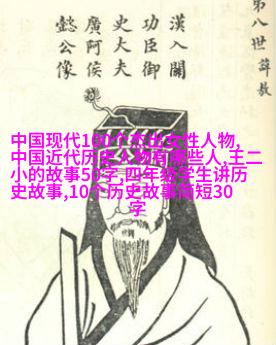 第八世諱敖
漢入關
功臣御
史大夫
廣阿侯
懿公像
中国现代100个杰出女性人物,
中国近代历史人物有哪些人,王二
小的故事50字,四年级学生讲历
史故事,10个历史故事简短30
字